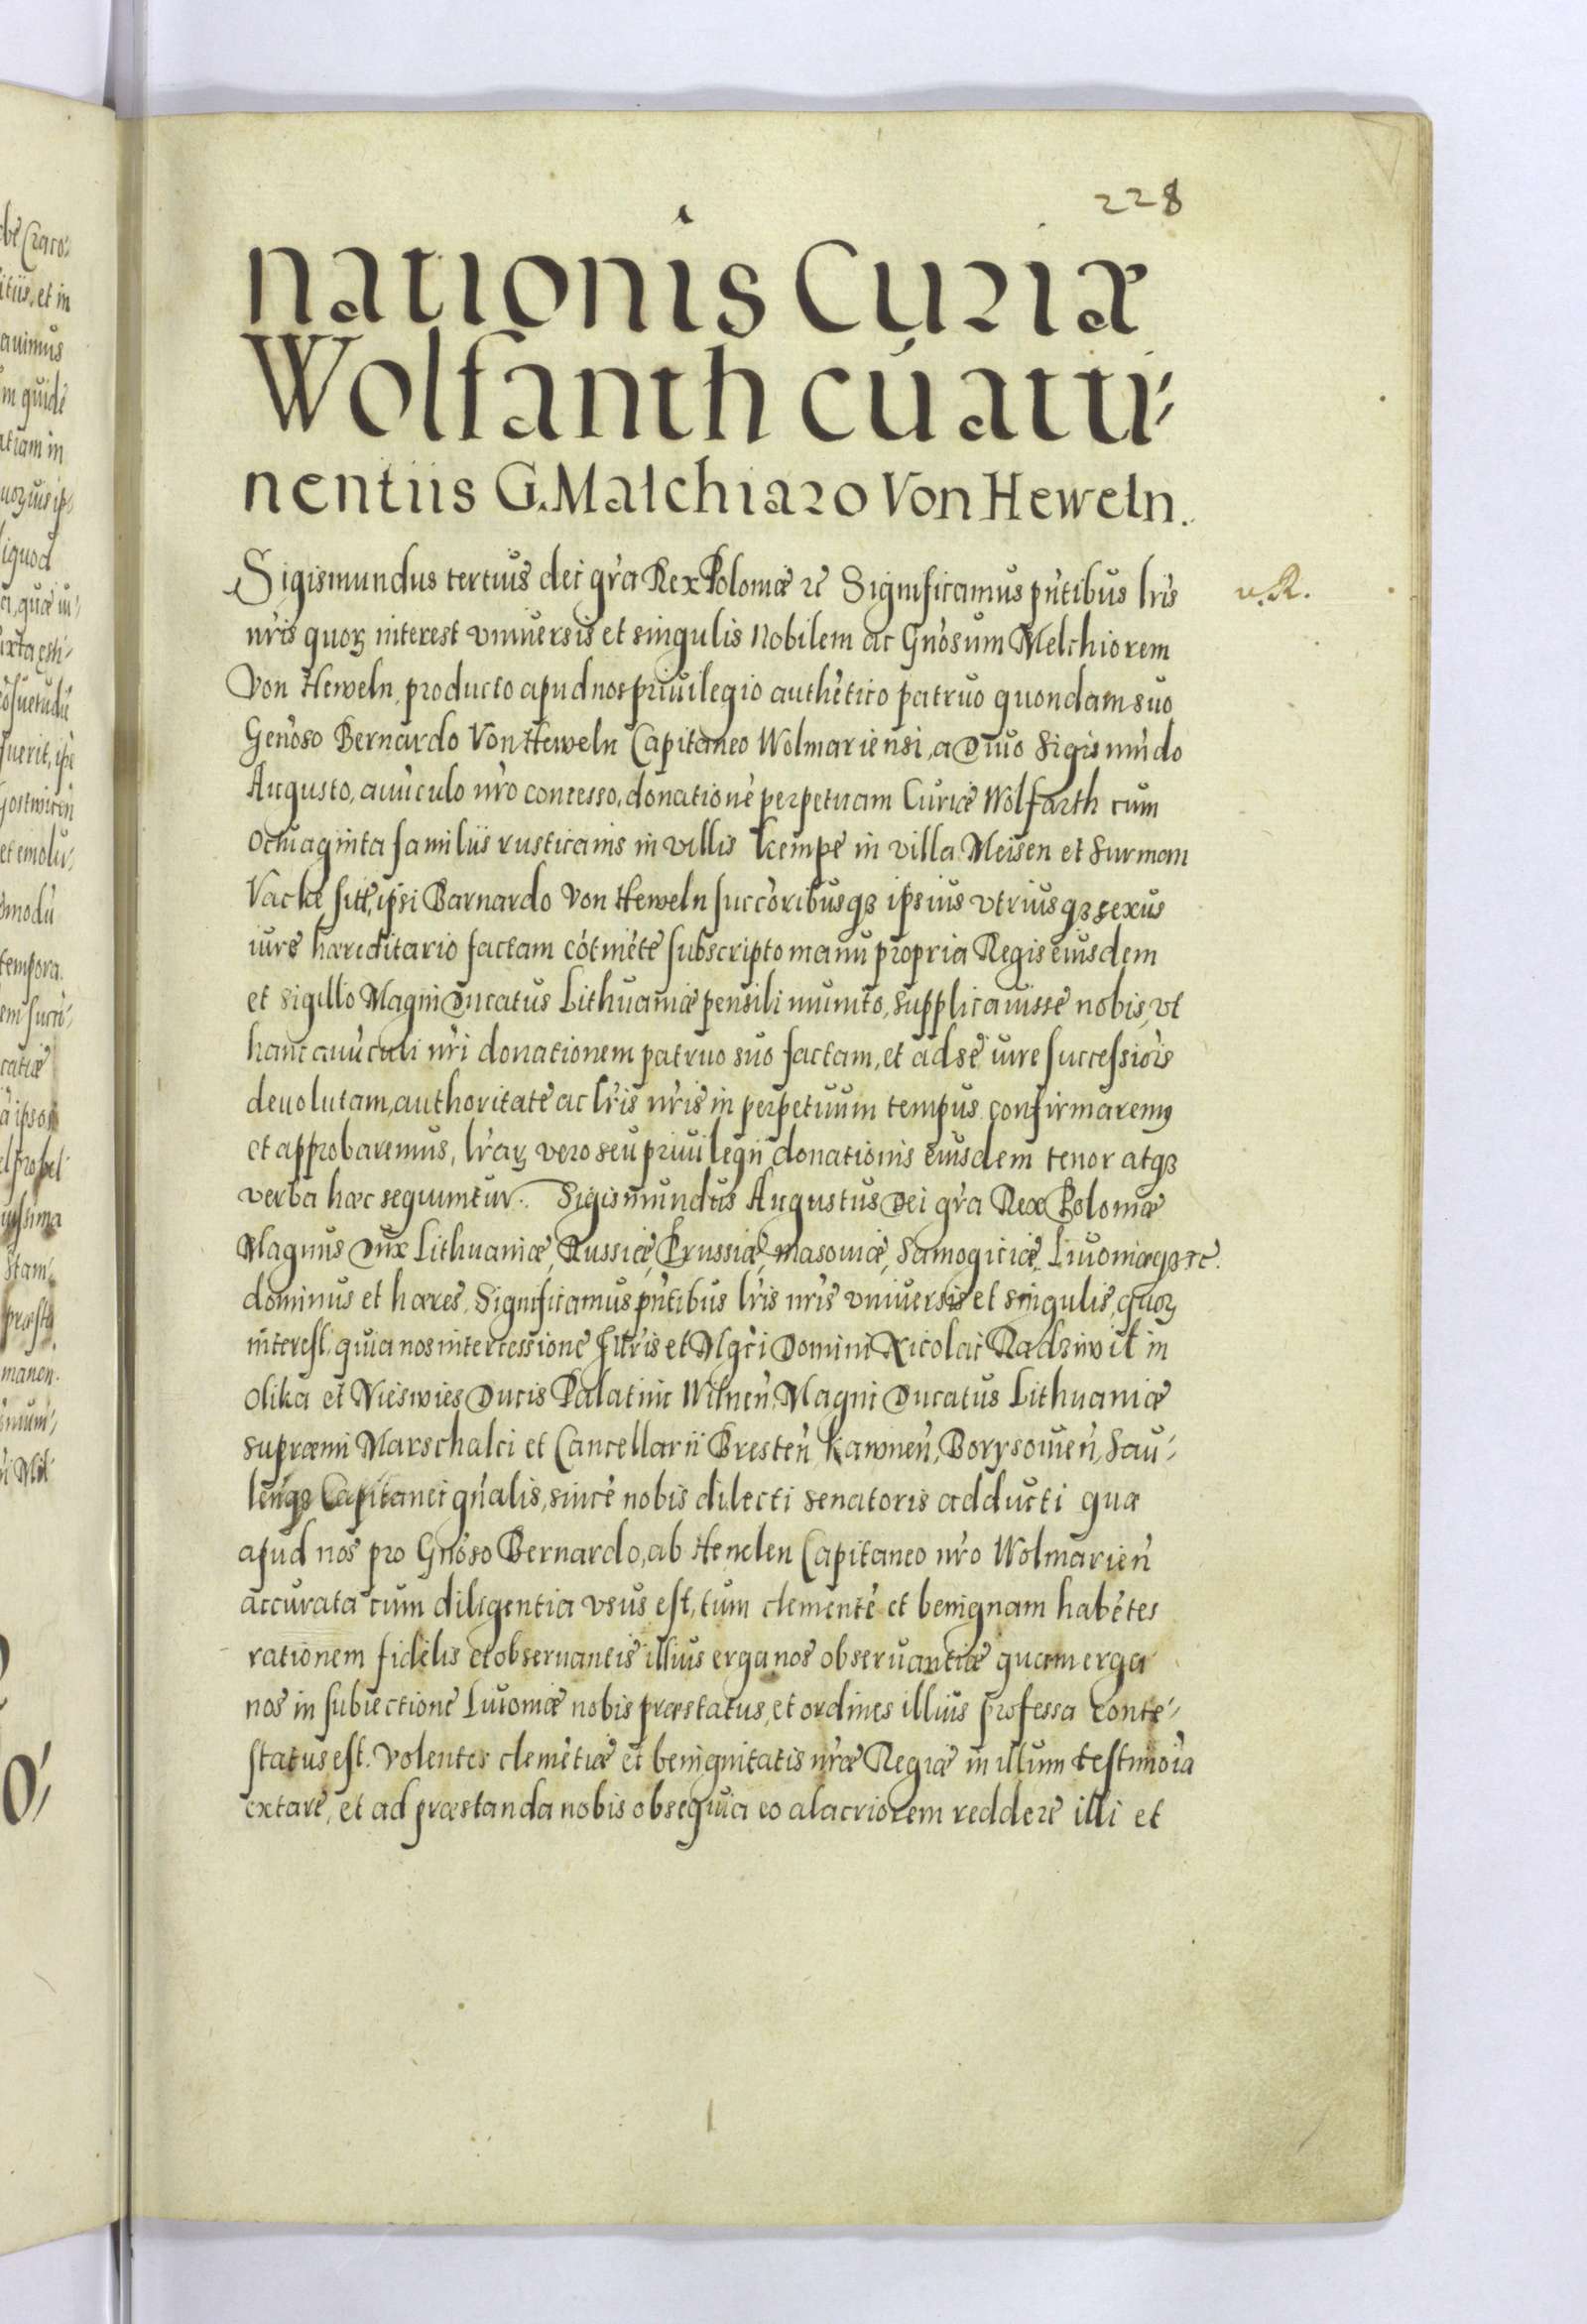 228
nationis Curiæ
Wolfanth cú atti-
nentiis G. Malchiaro Von Heweln.
Sigismundus tertius dei gr̃a Rex Poloniæ ꝛc Significamus pn̄tibus lr̃is
nr̃is quoꝝ interest vniuersis et singulis Nobilem ac Gnõsum Melchiorem
Von Heweln, producto apud nos priuilegio authẽtico patruo quondam suo
Genõso Bernardo Von Heweln Capitaneo Wolmariensi, a Diuo Sigismũdo
Augusto, auũculo nr̃o concesso, donationẽ perpetuam Curiæ Wolfarth cum
octuaginta familiis rusticanis in villis Kempe in villa Meisen et Surmom
Vacke sitẽ, ipsi Barnardo Von Heweln succõribusqꝫ ipsius vtriusqꝫ sexus
iure hæreditario factam cõtinẽte subscripto manu propria Regis eiusdem
et sigillo Magni Ducatus Lithuaniæ pensili munito, supplicauisse nobis, vt
hanc auũculi nr̃i donationem patruo suo factam, et ad se iure successiõis
deuolutam, authoritate ac lr̃is nr̃is in perpetuum tempus confirmaremꝰ
et approbaremus, lr̃aꝝ vero seu priuilegii donationis eiusdem tenor atqꝫ
verba hæc sequuntur. Sigismundus Augustus Dei gr̃a Rex Poloniæ
Magnus Dux Lithuaniæ, Russiæ, Prussiæ, Masouiæ, Samogitiæ, Liuoniæqꝫ ꝛc.
dominus et hæres. Significamus pn̄tibus lr̃is nr̃is vniuersis et singulis, quoꝝ
interest, quia nos intercessione Illr̃is et Mgc̃i Domini Nicolai Radziwil in
Olika et Nieswies Ducis Palatini Wilneñ Magni Ducatus Lithuaniæ
supræmi Marschalci et Cancellarii Bresteñ Kawneñ, Borysoueñ, Sau-
leñqꝫ Capitanei gñalis, sincẽ nobis dilecti Senatoris adducti qua
apud nos pro Gnõso Bernardo, ab Henelen Capitaneo nr̃o Wolmarieñ
accurata cum diligentia vsus est, tum clementẽ et benignam habẽtes
rationem fidelis et obseruantis illius erga nos obseruantiæ quam erga
nos in subiectione Liuoniæ nobis præstatus, et ordines illius professa conte-
status est. Volentes clemẽtiæ et benignitatis nr̃æ Regiæ in illum testimõia
extare, et ad præstanda nobis obsequia eo alacriorem reddere illi et